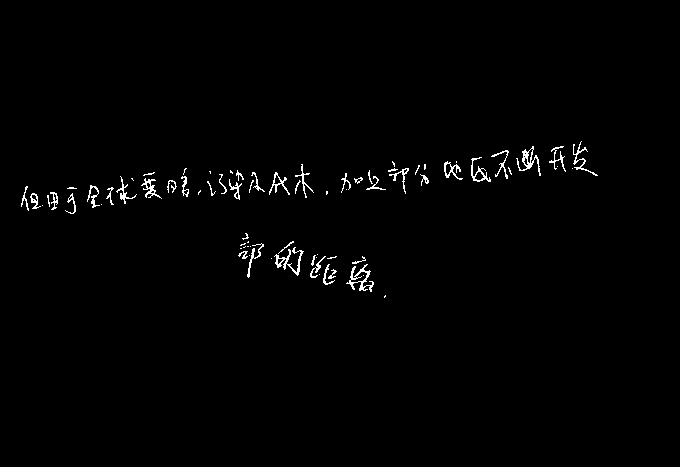 但由于全球变暖,污染及伐木,加上部分地区不断开发
部的距离.